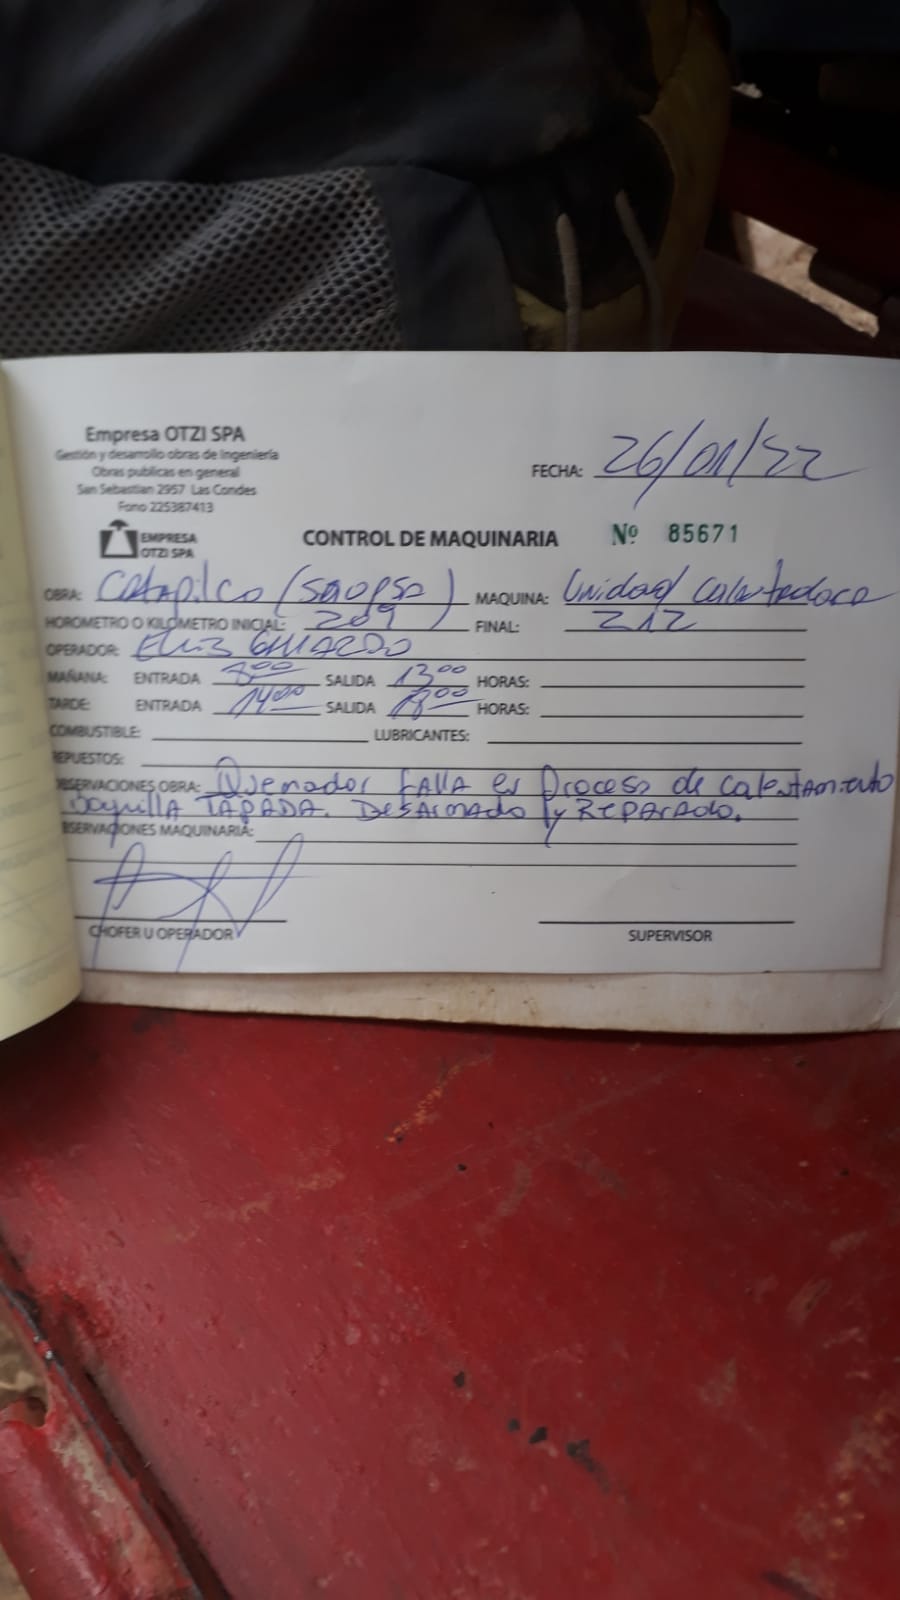 Empresa OTZI SPA
Gestión y desarrollo obras de Ingeniería
Obras publicas en general
San Sebastian 2957 Las Condes
Fono 225387413
FECHA: 26/01/22
EMPRESA
OTZI SPA
CONTROL DE MAQUINARIA Nº 85671
OBRA: Catapilco MAQUINA: Unidad Calentadora
HOROMETRO O KILOMETRO INICIAL: 209 FINAL: 212
OPERADOR: GALLARDO
MAÑANA: ENTRADA 8:00 SALIDA 13:00 HORAS:
TARDE: ENTRADA 14:00 SALIDA 18:00 HORAS:
COMBUSTIBLE: LUBRICANTES:
REPUESTOS:
OBSERVACIONES OBRA: Quemador FALLA en Proceso de Calentamiento
Boquilla TAPADA. Desarmado y REPARADO.
OBSERVACIONES MAQUINARIA:
CHOFER U OPERADOR SUPERVISOR